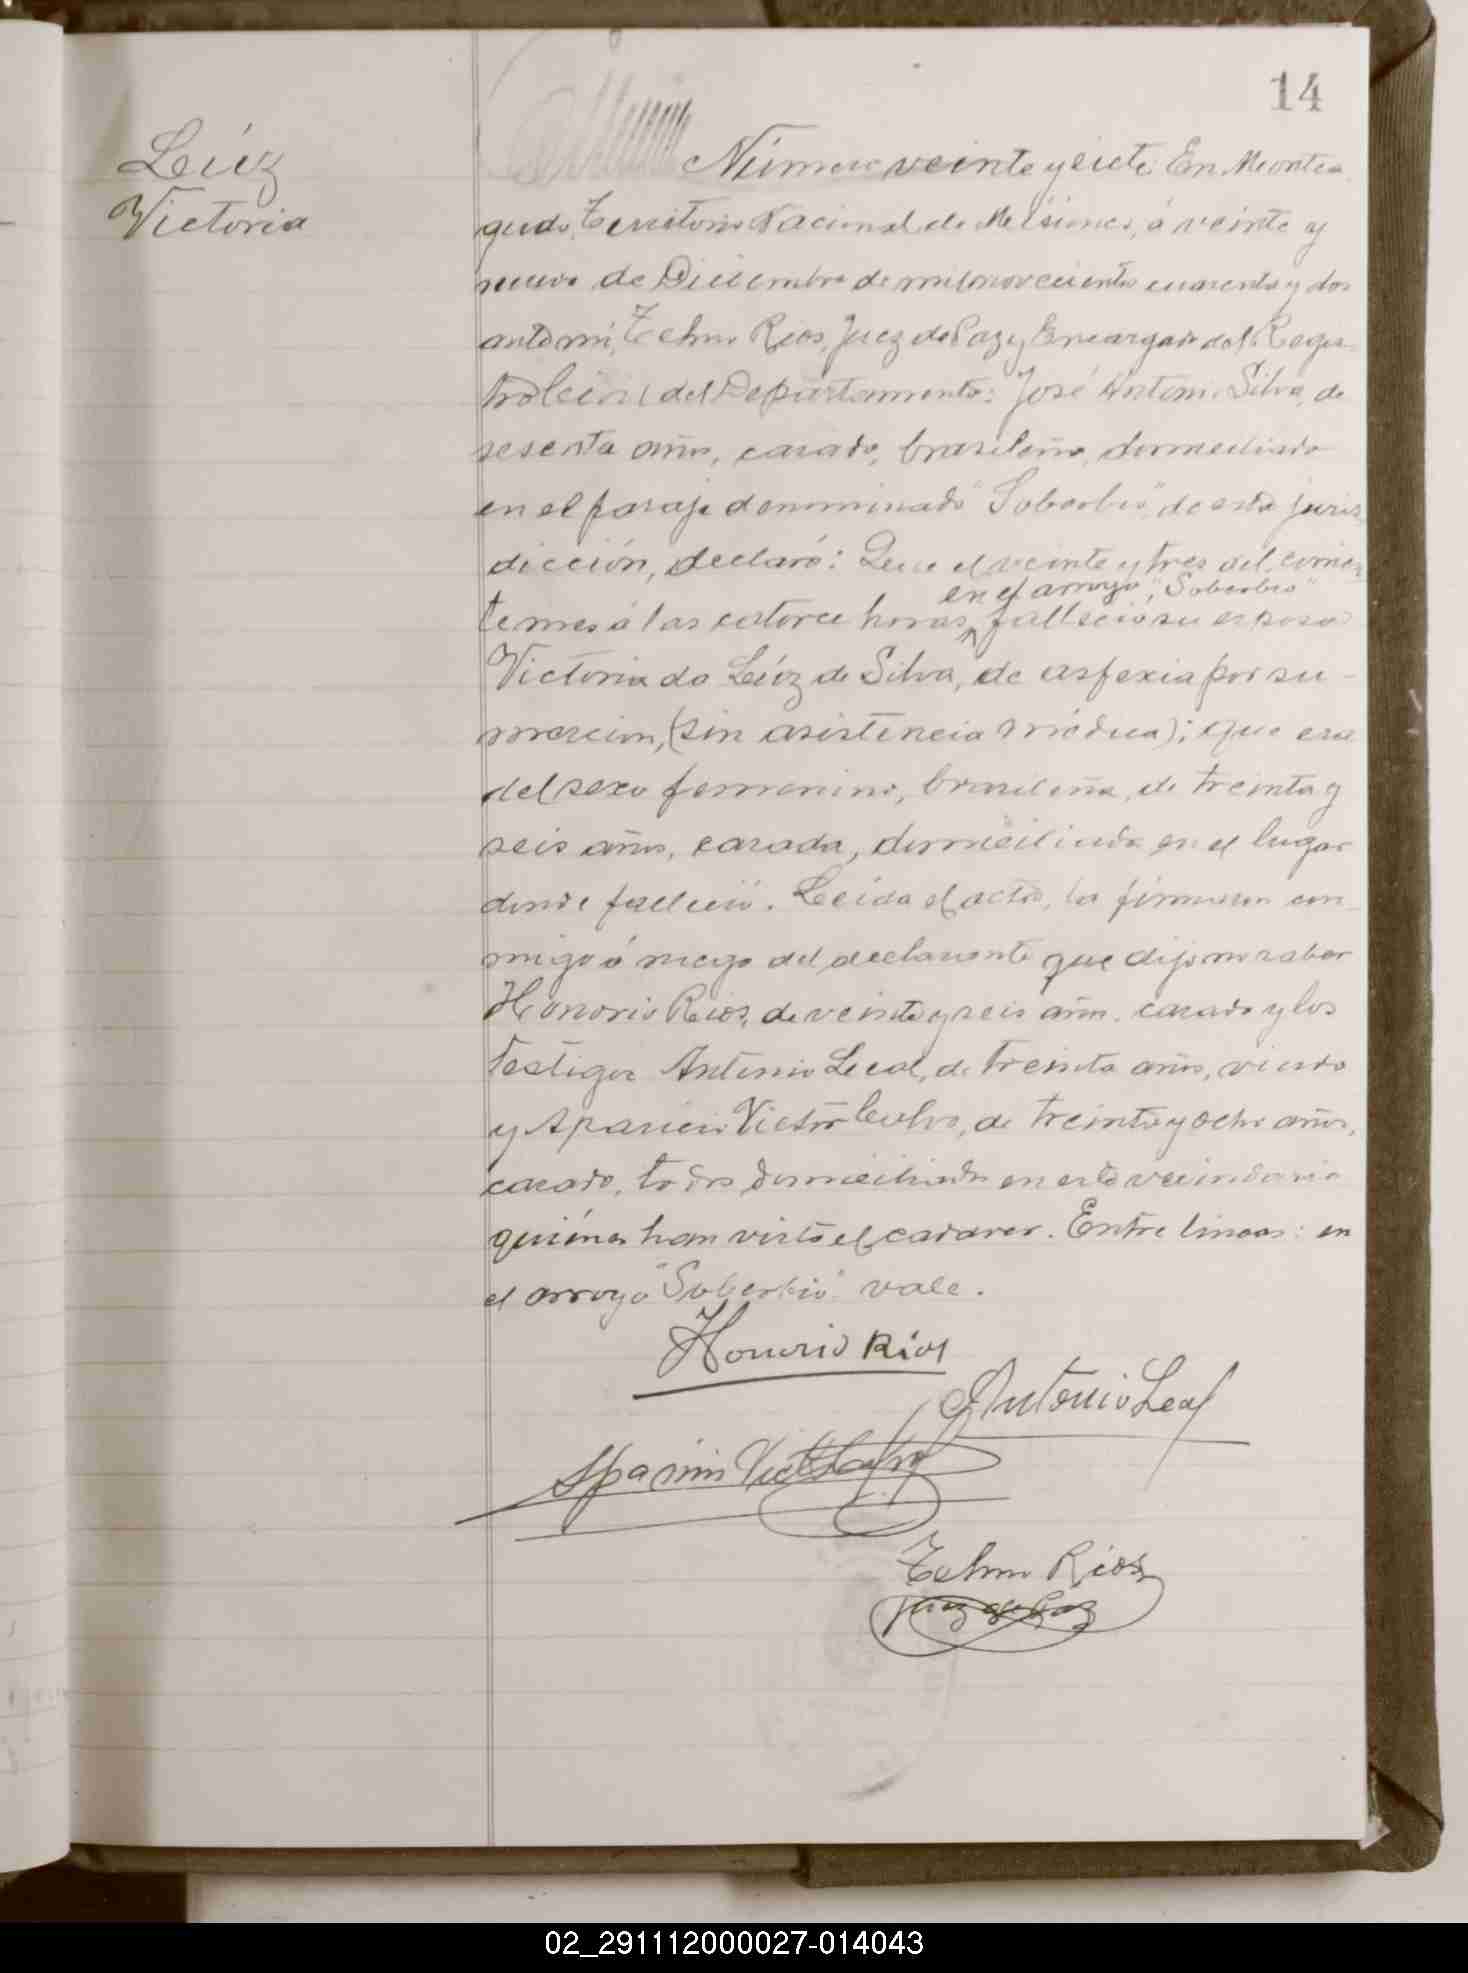 14
Léiz
Victoria
Número veinte y siete: En Montea
gudo, Territorio Nacional de Misiones, á veinte y
nueve de Diciembre de mil novecientos cuarenta y dos
ante mi, Telmo Rios, Juez de Paz y Encargado del Regis-
tro Civil del Departamento: José Antonio Silva, de
sesenta años, casado, brasileño, domiciliado
en el paraje denominado "Soberbio", de esta juris
dicción, declaró: Que el veinte y tres del corrien
en el arroyo, "Soberbio"
te mes á las catorce horas, falleció su esposa
Victoria da Léiz de Silva, de asfexia por su-
mersion, (sin asistencia médica); que era
del sexo femenino, brasileña, de treinta y
seis años, casada, domiciliada en el lugar
donde falleció. Leida el acta, la firmaron con
migo á ruego del declarante que dijo no saber
Honorio Rios, de veinte y seis años, casado y los
testigos Antonio Leal, de treinta años, viudo
y Aparicio Victor Calvo, de treinta y ocho años,
casado, todos domiciliados en este vecindario
quiénes han visto el cadaver. Entre lineas: en
el arroyo "Soberbio" vale.
Honorio Rios
Antonio Leal
Aparicio Victor Calvo
Telmo Rios
Juez de Paz
02_291112000027-014043